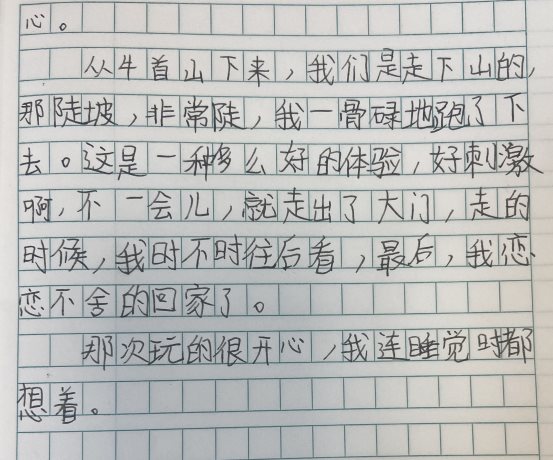 心。
从牛首山下来，我们是走下山的，
那陡坡，非常陡，我一骨碌地跑了下
去。这是一种多么好的体验，好刺激
啊，不一会儿，就走出了大门，走的
时候，我时不时往后看，最后，我恋
恋不舍的回家了。
那次玩的很开心，我连睡觉时都
想着。